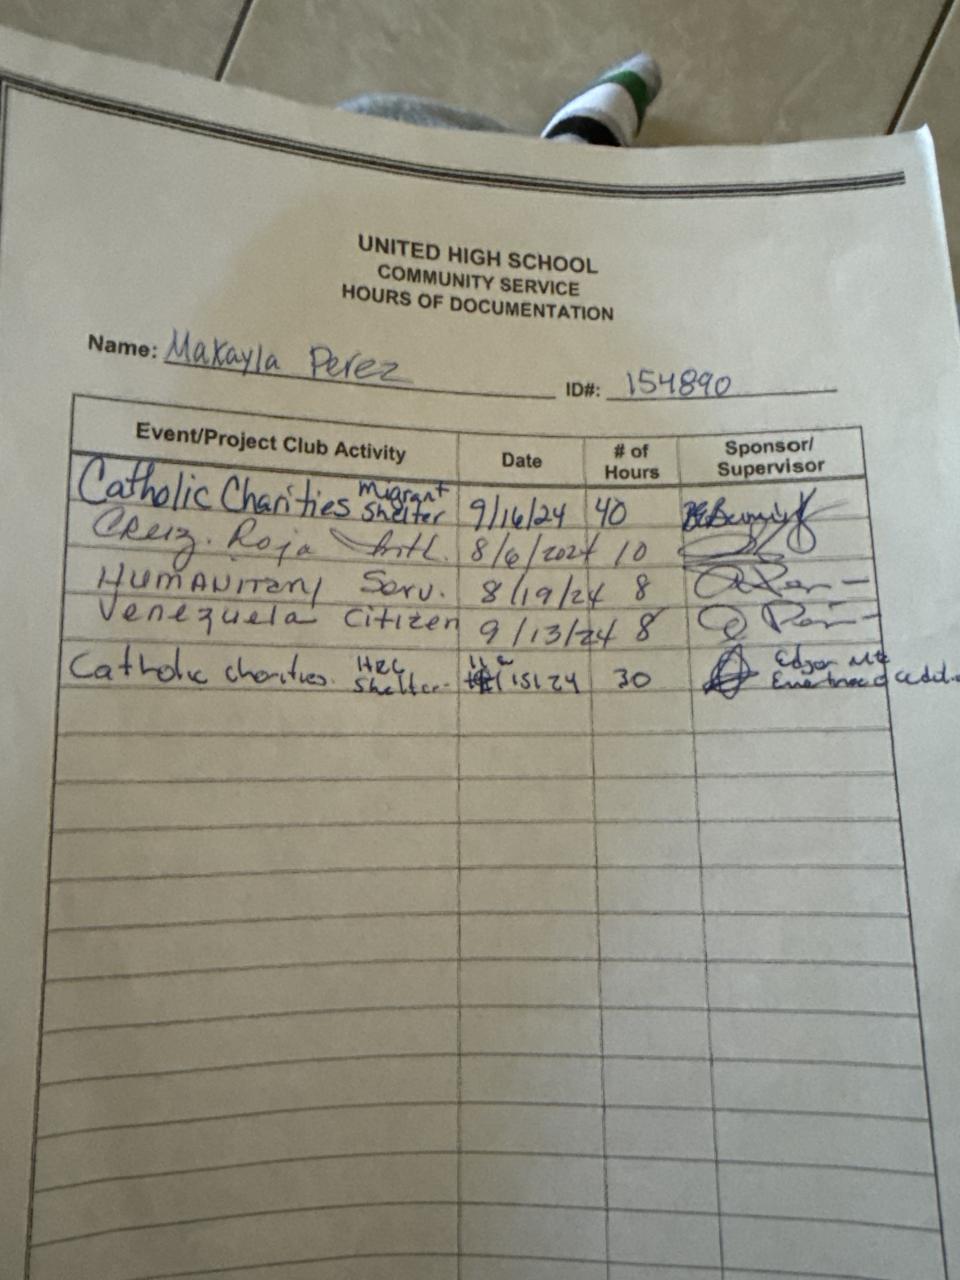 UNITED HIGH SCHOOL
COMMUNITY SERVICE
HOURS OF DOCUMENTATION
Name: Makayla Perez ID#: 154890
Event/Project Club Activity Date # of Hours Sponsor/Supervisor
Catholic Charities Migrant Shelter 9/16/24 40
Creiz. Roja Intl. 8/6/2024 10
Humanitary Serv. 8/19/24 8
Venezuela Citizen 9/13/24 8
Catholic charities. Shelter 15124 30 Edgar